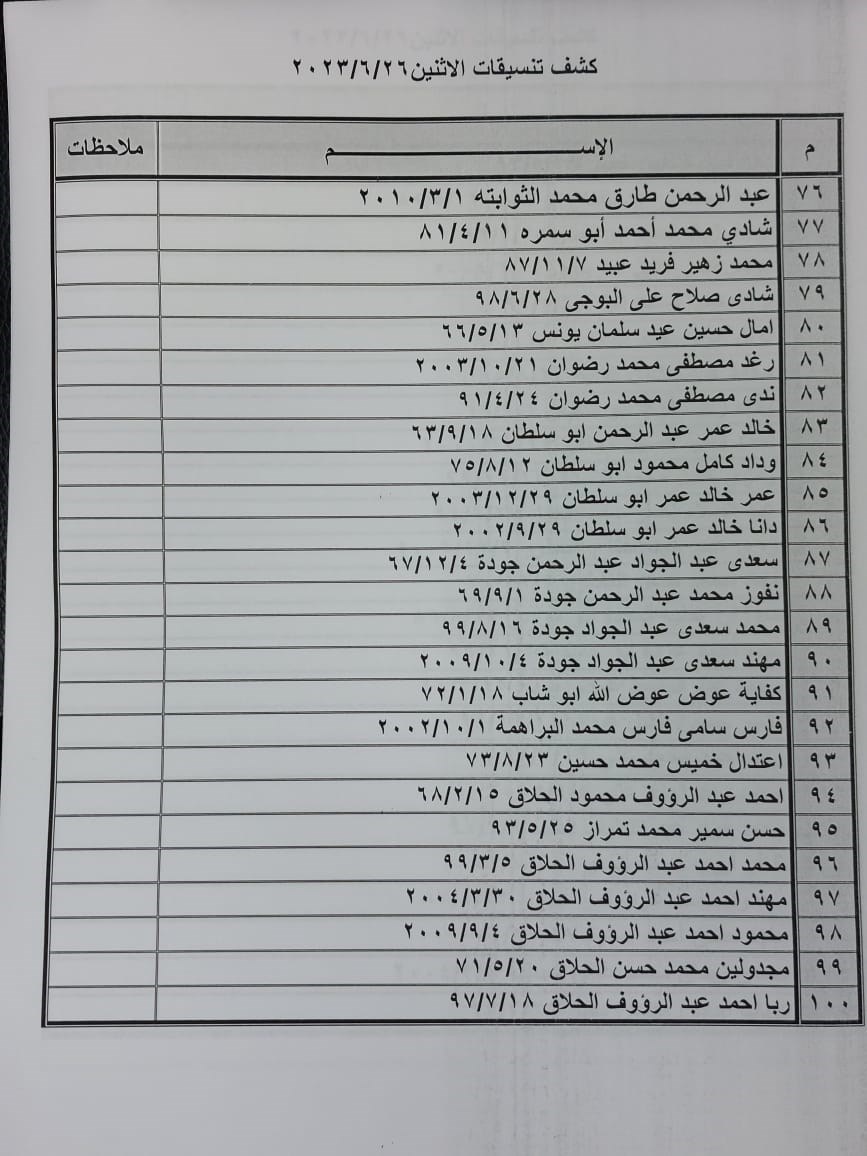 كشف تنسيقات الاثنين ٢٠٢٣/٦/٢٦
م الإســــــــــــم ملاحظات
٧٦ عبد الرحمن طارق محمد الثوابته ٢٠١٠/٣/١
٧٧ شادي محمد أحمد أبو سمره ٨١/٤/١١
٧٨ محمد زهير فريد عبيد ٨٧/١١/٧
٧٩ شادى صلاح على البوجى ٩٨/٦/٢٨
٨٠ امال حسين عيد سلمان يونس ٦٦/٥/١٣
٨١ رغد مصطفى محمد رضوان ٢٠٠٣/١٠/٢١
٨٢ ندى مصطفى محمد رضوان ٩١/٤/٢٤
٨٣ خالد عمر عبد الرحمن ابو سلطان ٦٣/٩/١٨
٨٤ وداد كامل محمود ابو سلطان ٧٥/٨/١٢
٨٥ عمر خالد عمر ابو سلطان ٢٠٠٣/١٢/٢٩
٨٦ دانا خالد عمر ابو سلطان ٢٠٠٢/٩/٢٩
٨٧ سعدى عبد الجواد عبد الرحمن جودة ٦٧/١٢/٤
٨٨ نفوز محمد عبد الرحمن جودة ٦٩/٩/١
٨٩ محمد سعدى عبد الجواد جودة ٩٩/٨/١٦
٩٠ مهند سعدى عبد الجواد جودة ٢٠٠٩/١٠/٤
٩١ كفاية عوض عوض الله ابو شاب ٧٢/١/١٨
٩٢ فارس سامى فارس محمد البراهمة ٢٠٠٢/١٠/١
٩٣ اعتدال خميس محمد حسين ٧٣/٨/٢٣
٩٤ احمد عبد الرؤوف محمود الحلاق ٦٨/٢/١٥
٩٥ حسن سمير محمد تمراز ٩٣/٥/٢٥
٩٦ محمد احمد عبد الرؤوف الحلاق ٩٩/٣/٥
٩٧ مهند احمد عبد الرؤوف الحلاق ٢٠٠٤/٣/٣٠
٩٨ محمود احمد عبد الرؤوف الحلاق ٢٠٠٩/٩/٤
٩٩ مجدولين محمد حسن الحلاق ٧١/٥/٢٠
١٠٠ ربا احمد عبد الرؤوف الحلاق ٩٧/٧/١٨